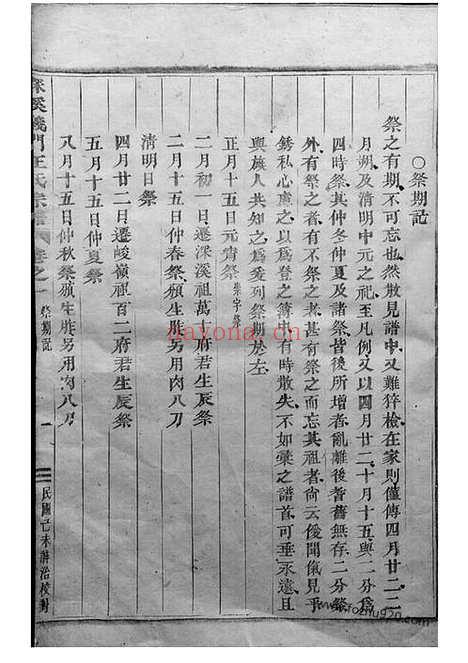 ○祭期記
祭之有期不可忘也然散見譜中又難猝檢在家則僅傳四月廿二二
月朔及清明中元之祀至凡例又以四月廿二十月十五與二分爲
四時祭其仲冬仲夏及諸祭皆後所增者亂離後者舊無存二分祭
外有祭之者有不祭之者夫有祭之而忘其祖者尚云優聞愾見乎
銹私心虞之以爲登之簿中有時散失不如彙之譜首可垂永遠且
與族人共知之爲爰列祭期於左
正月十五日元宵祭
二月初一日遷深溪祖萬一府君生辰祭
二月十五日仲春祭頒生胙另用肉八刀
清明日祭
四月廿二日遷峻嶺祖百二府君生辰祭
五月十五日仲夏祭
八月十五日仲秋祭頒生胙另用肉八刀
深溪義門王氏宗譜 卷之一 祭期記 一
民國己未耕治校對
nayona.cn
www.fozhu920.com